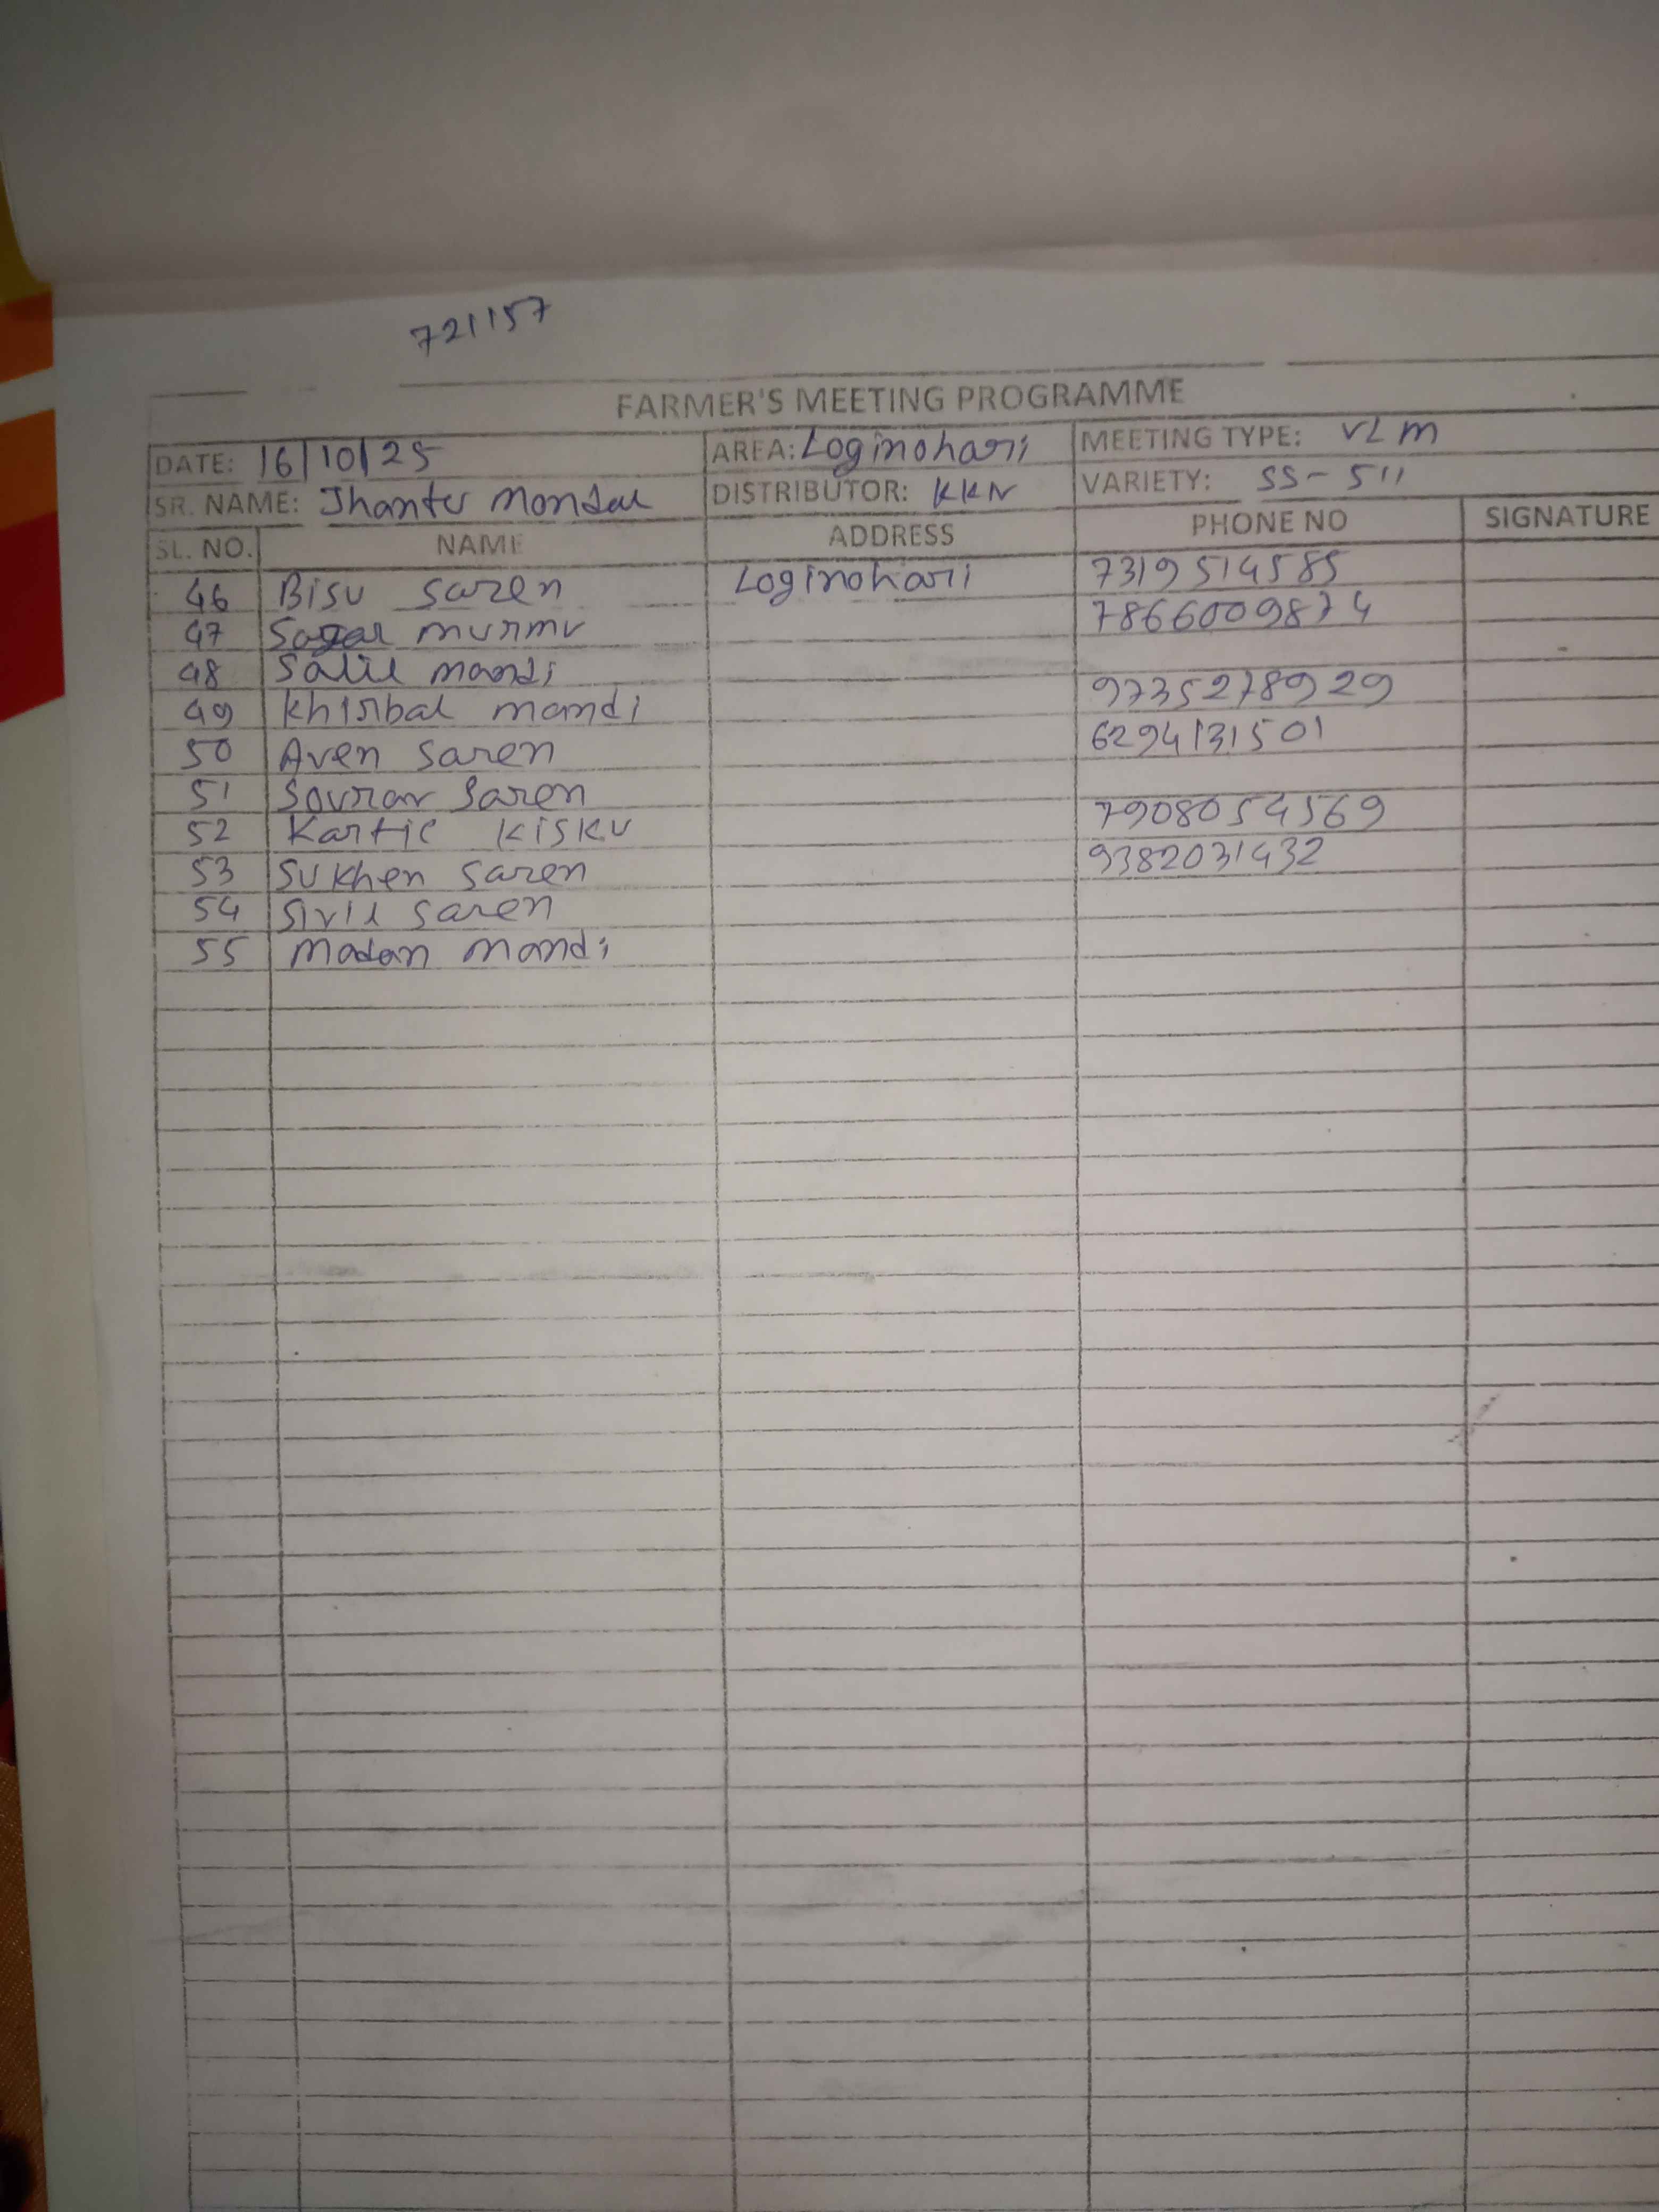 721157
FARMER'S MEETING PROGRAMME
DATE: 16/10/25 AREA: Loginohari MEETING TYPE: VLM
SR. NAME: Jhantu Mondal DISTRIBUTOR: KKN VARIETY: SS-511
SL. NO. NAME ADDRESS PHONE NO SIGNATURE
46 Bisu saren Loginohari 7319514585
47 Sagar murmu 7866009874
48 Salil mandi
49 khirbal mandi 9735278929
50 Aven saren 6294131501
51 Sourav Saren
52 Kartic KISKU 7908054569
53 Sukhen saren 9382031432
54 saren
55 Madan Mandi